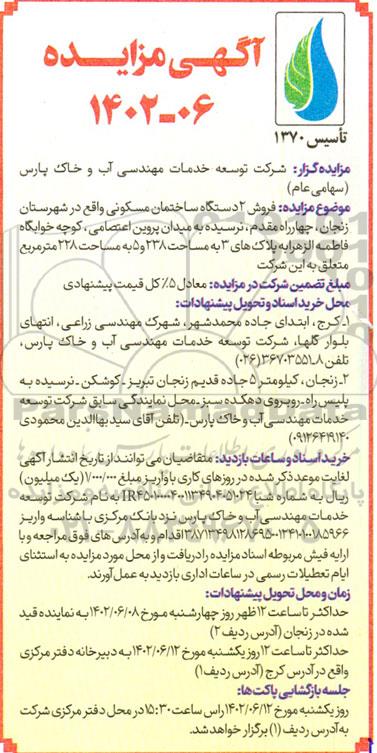 آگهی مزایده
۱۴۰۲-۰۶
تأسیس ۱۳۷۰
مزایده‌گزار: شرکت توسعه خدمات مهندسی آب و خاک پارس
(سهامی عام)
موضوع مزایده: فروش ۲ دستگاه ساختمان مسکونی واقع در شهرستان
زنجان، چهارراه مقدم، نرسیده به میدان پروین اعتصامی، کوچه خوابگاه
فاطمه الزهرا به پلاک های ۳ به مساحت ۲۳۸ و ۵ به مساحت ۲۲۸ مترمربع
متعلق به این شرکت
مبلغ تضمین شرکت در مزایده: معادل ۵٪ کل قیمت پیشنهادی
محل خرید اسناد و تحویل پیشنهادات:
۱ـ کرج، ابتدای جاده محمدشهر، شهرک مهندسی زراعی، انتهای
بلوار گلها، شرکت توسعه خدمات مهندسی آب و خاک پارس،
تلفن ۸ـ۳۶۷۰۳۵۵۱ (۰۲۶)
۲ـ زنجان، کیلومتر ۵ جاده قدیم زنجان تبریز ـ کوشکن ـ نرسیده به
پلیس راه ـ روبروی دهکده سبز ـ محل نمایندگی سابق شرکت توسعه
خدمات مهندسی آب و خاک پارس ـ (تلفن آقای سید بهاالدین محمودی
۰۹۱۲۶۴۱۹۱۴۰)
خرید اسناد و ساعات بازدید: متقاضیان می توانند از تاریخ انتشار آگهی
لغایت موعد ذکر شده در روزهای کاری با واریز مبلغ ۱/۰۰۰/۰۰۰ (یک میلیون)
ریال به شماره شبا به نام شرکت توسعه
خدمات مهندسی آب و خاک پارس نزد بانک مرکزی با شناسه واریز
اقدام و به آدرس های فوق مراجعه و با
ارایه فیش مربوطه اسناد مزایده را دریافت و از محل مورد مزایده به استثنای
ایام تعطیلات رسمی در ساعات اداری بازدید به عمل آورند.
زمان و محل تحویل پیشنهادات:
حداکثر تا ساعت ۱۲ ظهر روز چهارشنبه مورخ ۱۴۰۲/۰۶/۰۸ به نماینده قید
شده در زنجان (آدرس ردیف ۲)
حداکثر تا ساعت ۱۲ روز یکشنبه مورخ ۱۴۰۲/۰۶/۱۲ به دبیرخانه دفتر مرکزی
واقع در آدرس کرج (آدرس ردیف ۱)
جلسه بازگشایی پاکت‌ها:
روز یکشنبه مورخ ۱۴۰۲/۰۶/۱۲ راس ساعت ۱۵:۳۰ در محل دفتر مرکزی شرکت
به آدرس ردیف (۱) برگزار خواهد شد.